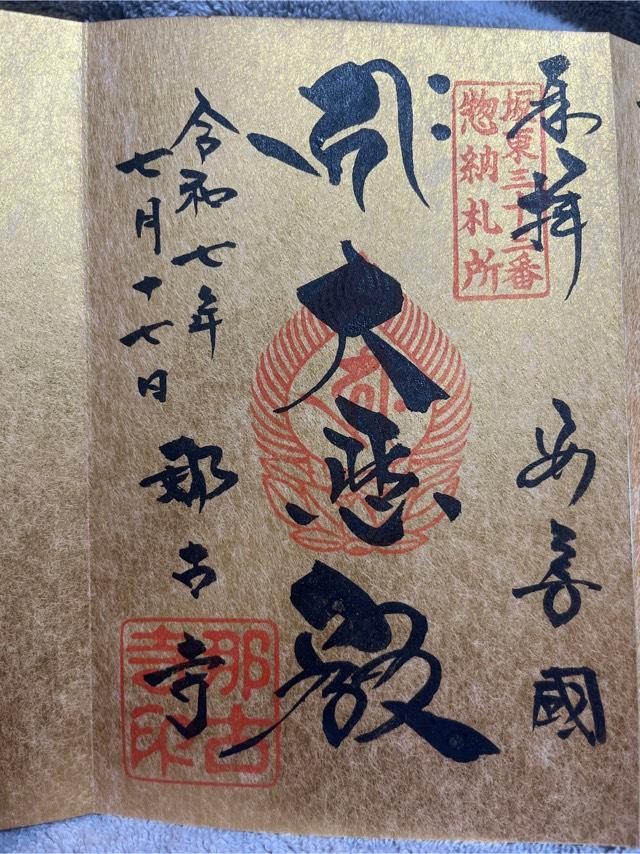 奉拝
坂東三十三番
惣納札所
安房國
大悲殿
令和七年
七月十七日
那古寺
那古
寺印